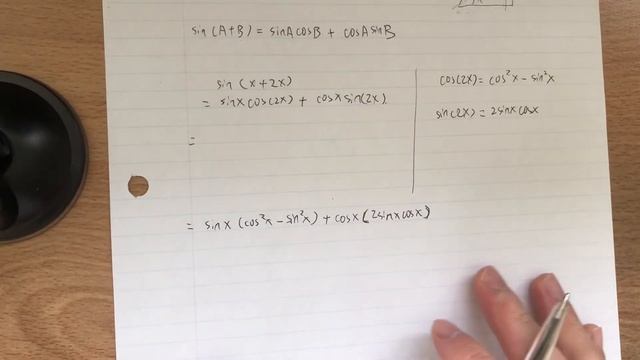 sin(A+B) = sinA cosB + cosA sinB
sin(x+2x)
= sinx cos(2x) + cosx sin(2x)
=
cos(2x) = cos²x - sin²x
sin(2x) = 2sinx cosx
= sinx (cos²x - sin²x) + cosx (2sinx cosx)